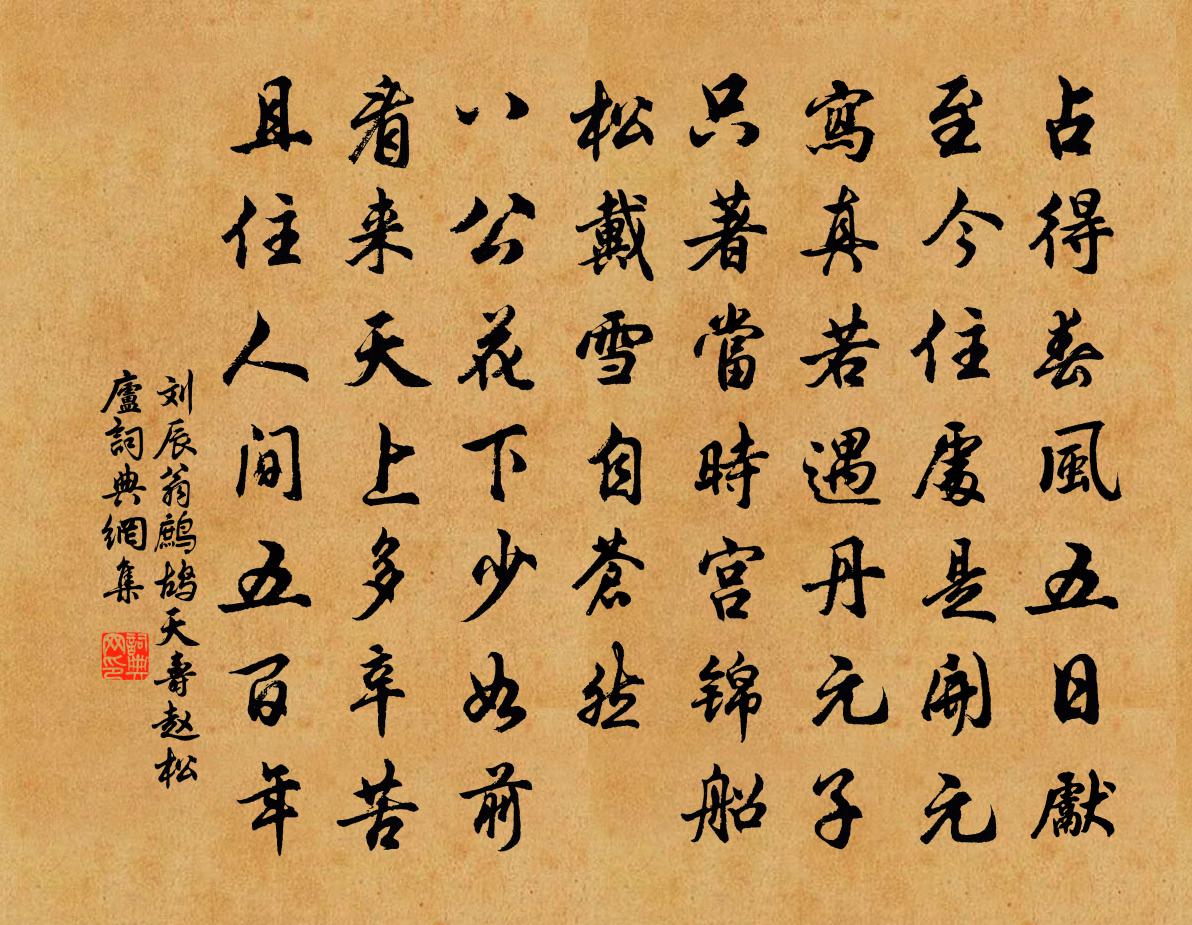 占得春風五日獻
至今住處是開元
寫真若遇丹元子
只著當時宫锦船
松戴雪自蒼然
八公花下少如前
看来天上多辛苦
且住人间五百年
刘辰翁鷓鸪天壽赵松
廬詞典網集
詞典
网印